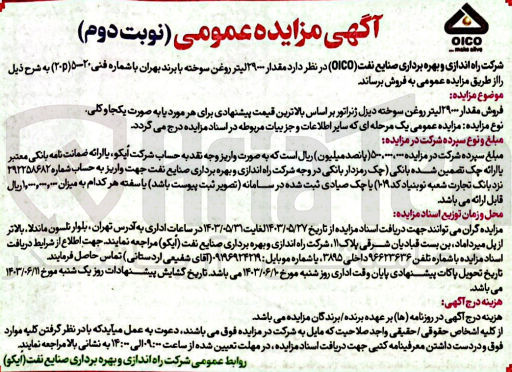 آگهی مزایده عمومی (نوبت دوم)
OICO
... make alive
شرکت راه اندازی و بهره برداری صنایع نفت (OICO) در نظر دارد مقدار ۲۹۰۰۰ لیتر روغن سوخته با برند بهران با شماره فنی ۲۰-۵۰ (۲۰p) به شرح ذیل
را از طریق مزایده عمومی به فروش برساند.
موضوع مزایده:
فروش مقدار ۲۹۰۰۰ لیتر روغن سوخته دیزل ژنراتور بر اساس بالاترین قیمت پیشنهادی برای هر مورد یا به صورت یکجا و کلی.
نوع مزایده: مزایده عمومی یک مرحله ای که سایر اطلاعات و جزییات مربوطه در اسناد مزایده درج می گردد.
مبلغ و نوع سپرده شرکت در مزایده:
مبلغ سپرده شرکت در مزایده ۵۰۰,۰۰۰,۰۰۰ (پانصد میلیون) ریال است که به صورت واریز وجه نقد به حساب شرکت اُیکو، یا ارائه ضمانت نامه بانکی معتبر
یا ارائه چک تضمین شده بانکی (چک رمزدار بانکی) در وجه شرکت راه اندازی و بهره برداری صنایع نفت جهت واریز به حساب شماره ۲۹۲۲۵۸۶۸۲
نزد بانک تجارت شعبه نوبنیاد کد ۲۰۱۹) یا چک صیادی ثبت شده در سامانه (تصویر ثبت پیوست باشد) یا سفته هر کدام به میزان ۱,۰۰۰,۰۰۰,۰۰۰ ریال
قابل ارائه می باشد.
محل و زمان توزیع اسناد مزایده:
مزایده گران می توانند جهت دریافت اسناد مزایده از تاریخ ۱۴۰۳/۰۵/۲۷ لغایت ۱۴۰۳/۰۵/۳۱ در ساعات اداری به آدرس تهران، بلوار نلسون ماندلا، بالاتر
از پل میرداماد، بن بست قبادیان شرقی پلاک ۱۱، شرکت راه اندازی و بهره برداری صنایع نفت (اُیکو) مراجعه نمایند. جهت اطلاع از شرایط دریافت
اسناد مزایده با شماره تلفن ۹۶۶۲۳۶۳۶ داخلی ۳۸۹۵، یا شماره موبایل: ۰۹۱۹۶۹۲۴۲۹۰ (آقای شفیعی اردستانی) تماس حاصل فرمایند.
تاریخ تحویل پاکات پیشنهادی پایان وقت اداری روز شنبه مورخ ۱۴۰۳/۰۶/۱۰ می باشد. تاریخ گشایش پیشنهادات روز یک شنبه مورخ ۱۴۰۳/۰۶/۱۱
می باشد.
هزینه درج آگهی:
هزینه درج آگهی در روزنامه (ها) بر عهده برنده/برندگان مزایده می باشد.
از کلیه اشخاص حقوقی/حقیقی واجد صلاحیت که مایل به شرکت در مزایده فوق می باشند، دعوت به عمل میآید که با در نظر گرفتن کلیه موارد
فوق و در دست داشتن معرفینامه کتبی جهت دریافت اسناد مزایده، در مهلت تعیین شده از ساعت ۰۹:۰۰ الی ۱۴:۰۰ به نشانی بالا مراجعه نمایند.
روابط عمومی شرکت راه اندازی و بهره برداری صنایع نفت (اُیکو)